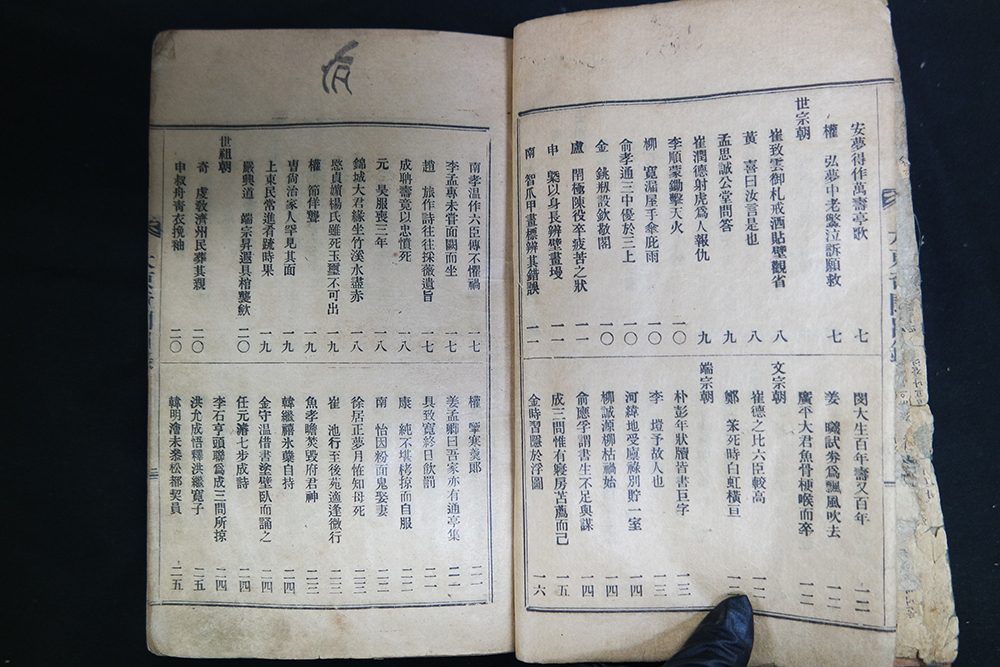 安夢得作萬壽亭歌 七
權 弘夢中老鱉泣訴願救 七
世宗朝
崔致雲御札戒酒貼壁觀省 八
黃 喜曰汝言是也 八
孟思誠公堂問答 九
崔潤德射虎爲人報仇 九
李順蒙鋤擊天火 一〇
柳 寬漏屋手傘庇雨 一〇
兪孝通三中優於三上 一〇
金 銚剏設欽敬閣 一〇
盧 閈極陳役卒疲苦之狀 一一
申 槩以身長辨壁畫墁 一一
南 智爪甲畫標辨其錯誤 一一
閔大生百年壽又百年 一二
姜 曦試券爲飄風吹去 一二
廣平大君魚骨梗喉而卒 一二
文宗朝
崔德之比六臣較高 一二
鄭 笨死時白虹橫亘
端宗朝
朴彭年狀牘皆書巨字 一三
李 塏予故人也 一三
河緯地受廬祿別貯一室 一四
柳誠源柳枯禍始 一四
兪應孚謂書生不足與謀 一四
成三問惟有寢房苫薦而已 一五
金時習隱於浮圖 一六
南孝溫作六臣傳不懼禍 一七
李孟專未嘗面闕而坐 一七
趙 旅作詩往往採薇遺旨 一七
成聃壽竟以忠憤死 一八
元 昊服喪三年 一八
錦城大君緣坐竹溪水盡赤 一八
愍貞讀楊氏雖死玉璽不可出 一九
權 節佯聾 一九
曺尙治家人罕見其面 一九
上東民常進肴蔬時果 一九
嚴興道 端宗昇遐具棺襲歛 二〇
世祖朝
奇 虔敎濟州民葬其親 二〇
申叔舟靑衣挽袖 二〇
權 擥寒羹郞 二一
姜孟卿曰吾家亦有通亭集 二一
具致寬終日飮罰 二一
康 純不堪栲掠而自服 二二
南 怡因粉面鬼娶妻 二二
徐居正夢月恠知母死 二三
崔 池行至後苑適逢微行 二三
魚孝瞻焚毁府君神 二三
韓繼禧氷蘖自持 二四
金守溫借書塗壁臥而誦之 二四
任元濬七步成詩 二四
李石亨頭聯爲成三問所掠 二四
洪允成悟釋洪繼寬子 二五
韓明澮未參松都契員 二五